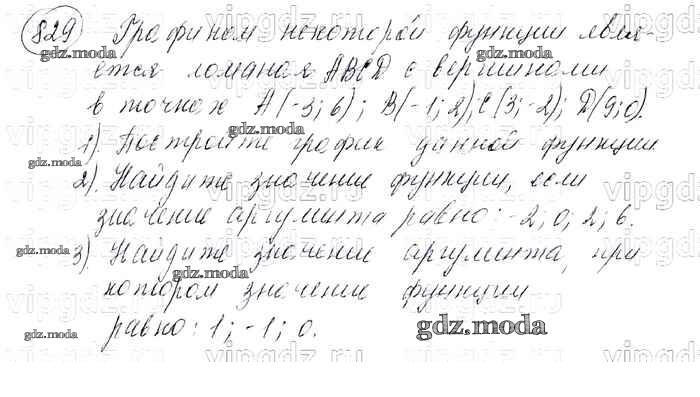 829 Графиком некоторой функции явля-
ется ломаная ABCD с вершинами
в точках A(-3; 6); B(-1; 2); C(3; -2); D(9; 0).
1) Постройте график данной функции
2) Найдите значение функции, если
значение аргумента равно: -2; 0; 2; 6.
3) Найдите значение аргумента, при
котором значение функции
равно: 1; -1; 0.
gdz.moda
gdz.moda
gdz.moda
gdz.moda
gdz.moda
gdz.moda
gdz.moda
gdz.moda
gdz.moda
vipgdz.ru